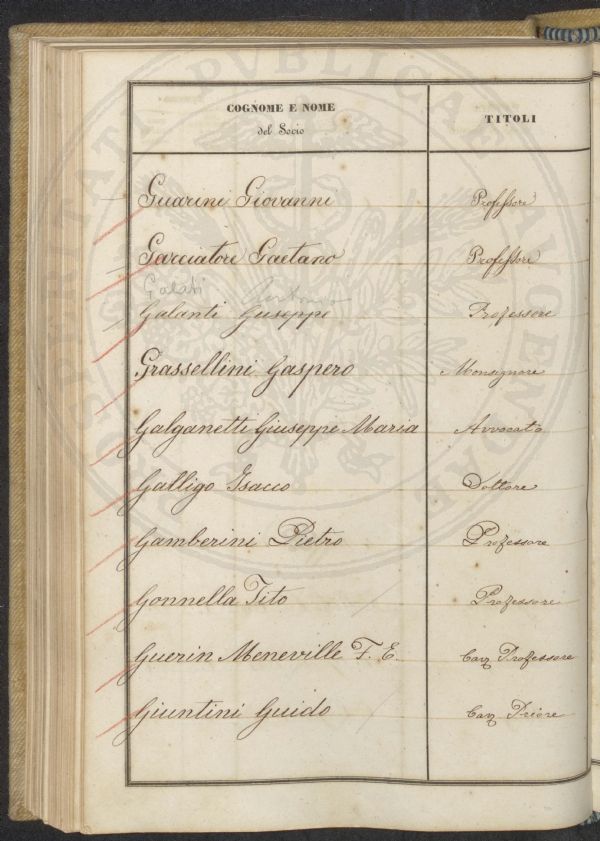 COGNOME E NOME
del Socio
TITOLI
Guarini Giovanni Professore
Gacciatore Gaetano Professore
Galati
Galanti Guseppe Professore
Grassellini Gaspero Monsignore
Galganetti Giuseppe Maria Avvocato
Galligo Isacco Dottore
Gamberini Pietro Professore
Gonnella Tito Professore
Guerin Meneville F. E. Cav Professore
Giuntini Guido Cav Priore
PROSPERITATI PUBLICAE AUGENDAE